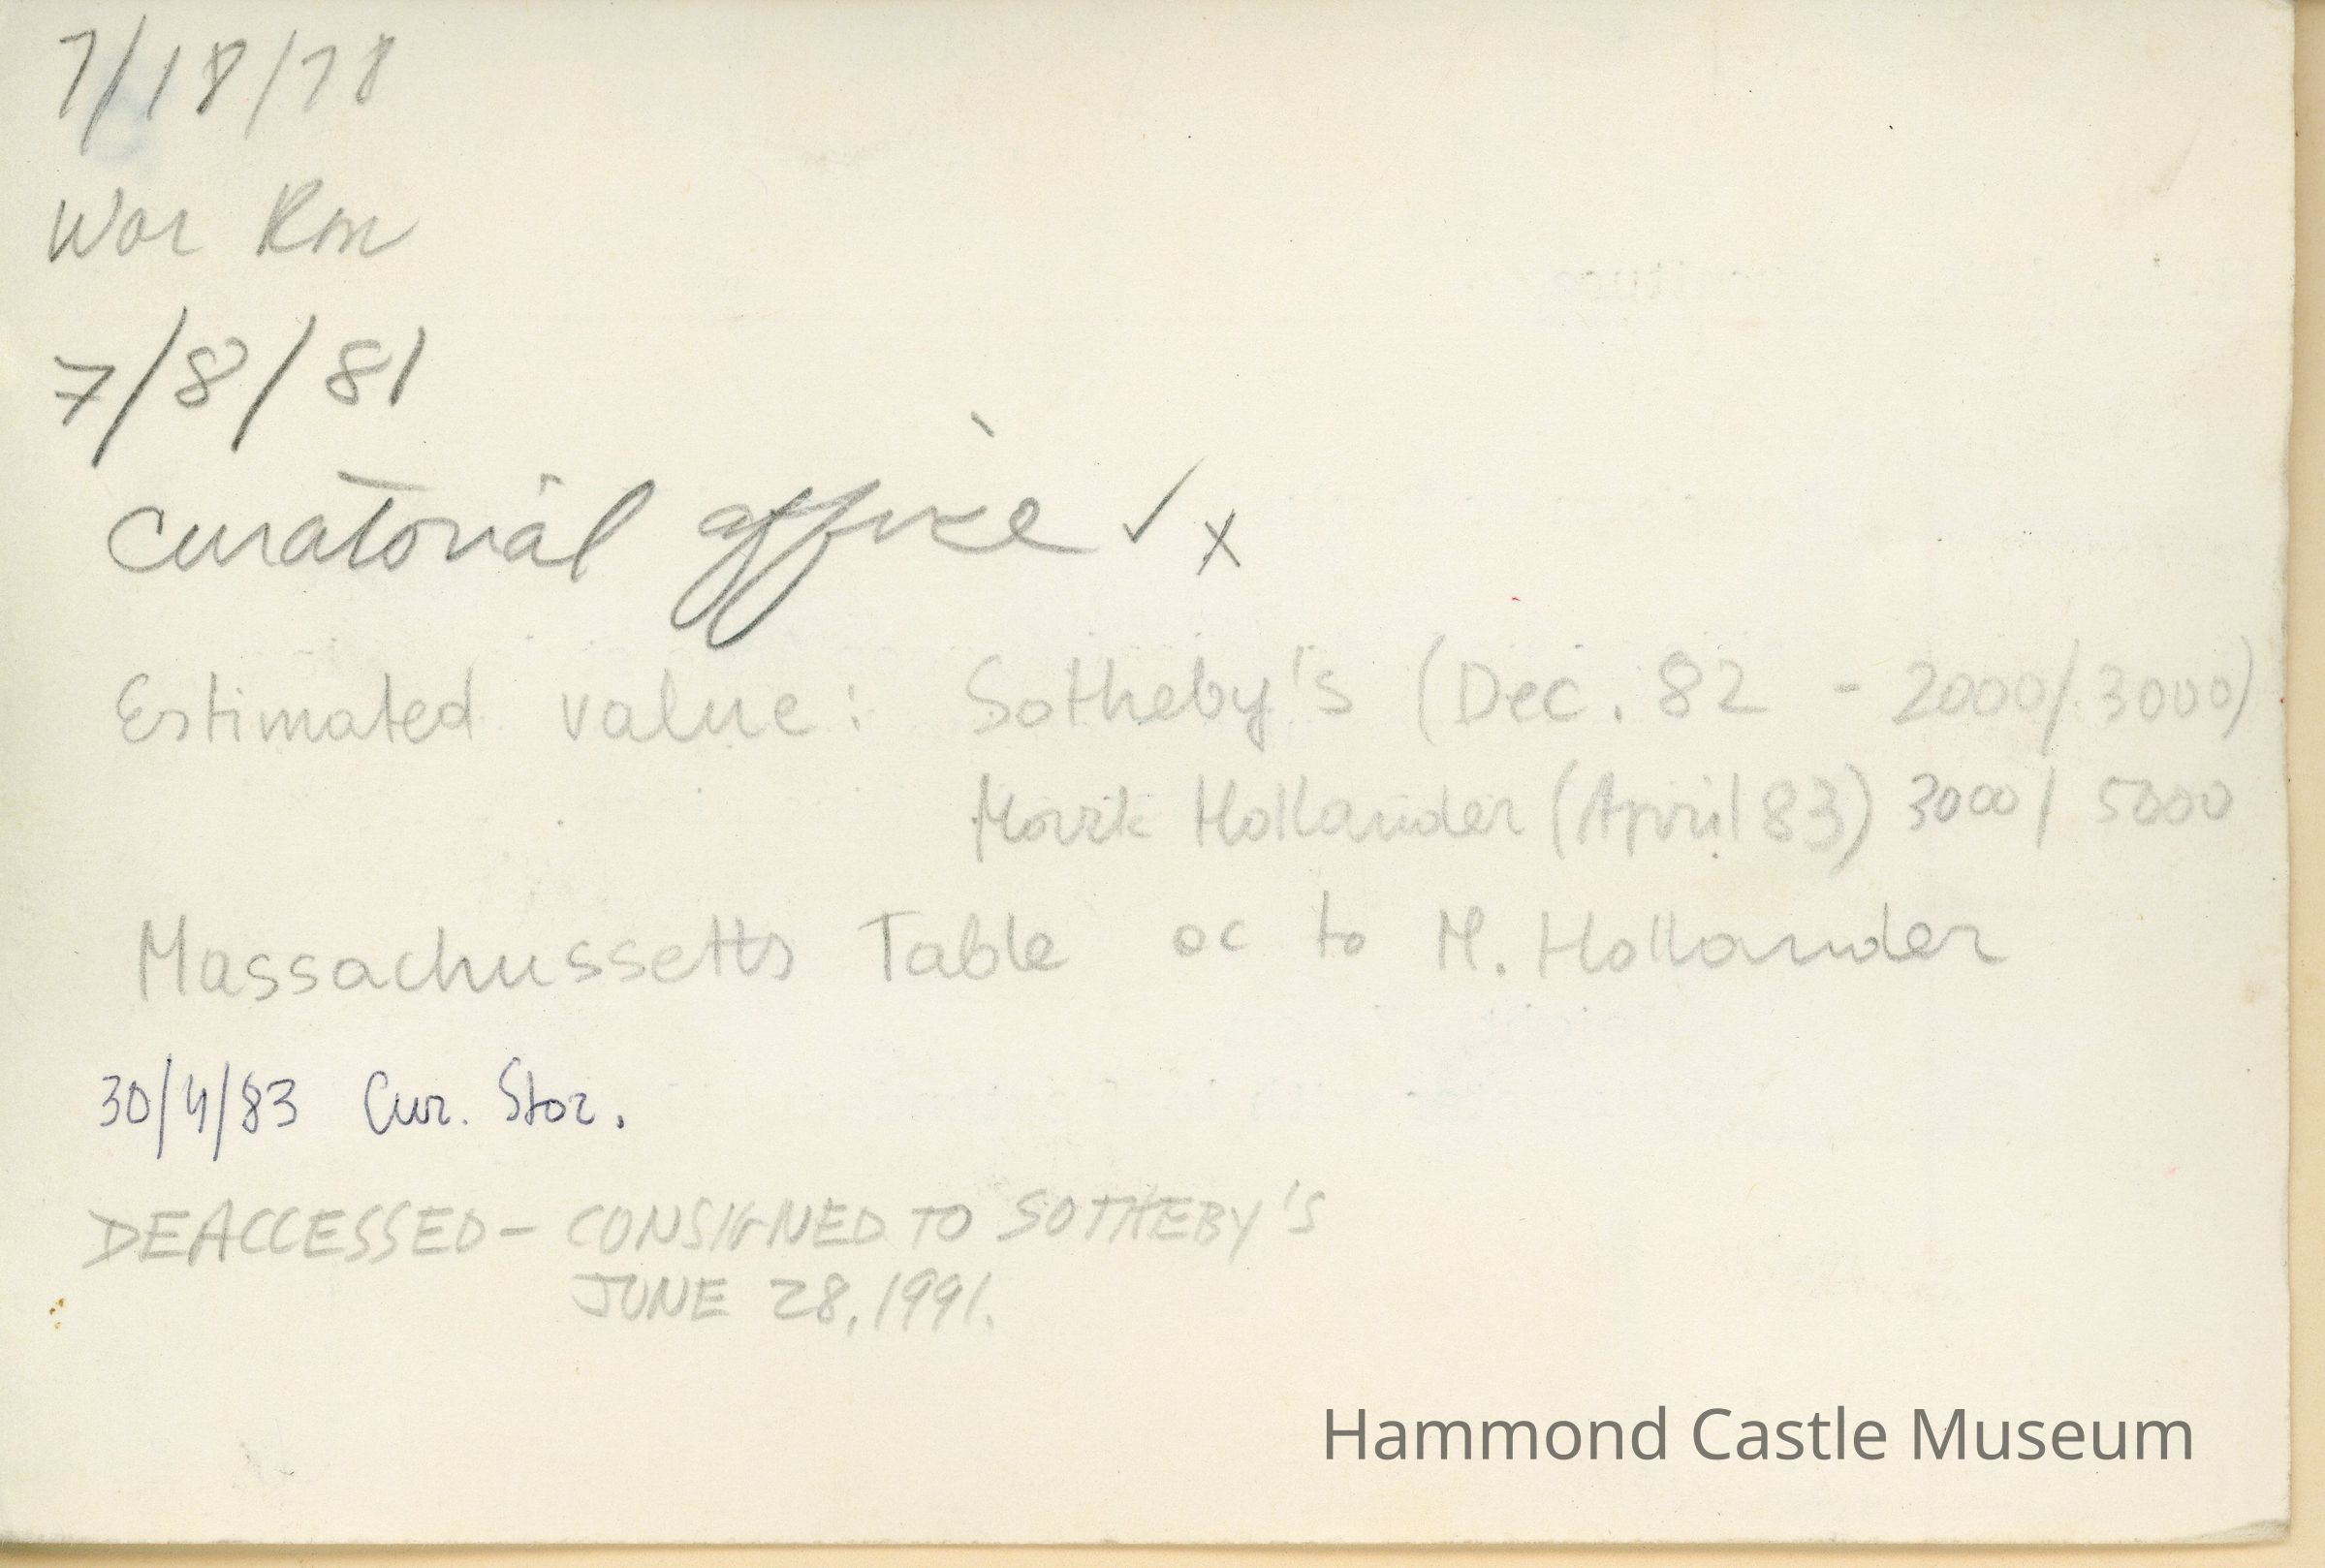 7/18/78
War Rm
7/8/81
Curatorial office ✓ x
Estimated value: Sotheby's (Dec. 82 - 2000/3000)
Morik Hollander (April 83) 3000/5000
Massachussetts Table oc to M. Hollander
30/4/83 Cur. Stor.
DEACCESSED - CONSIGNED TO SOTHEBY'S
JUNE 28, 1991.
Hammond Castle Museum